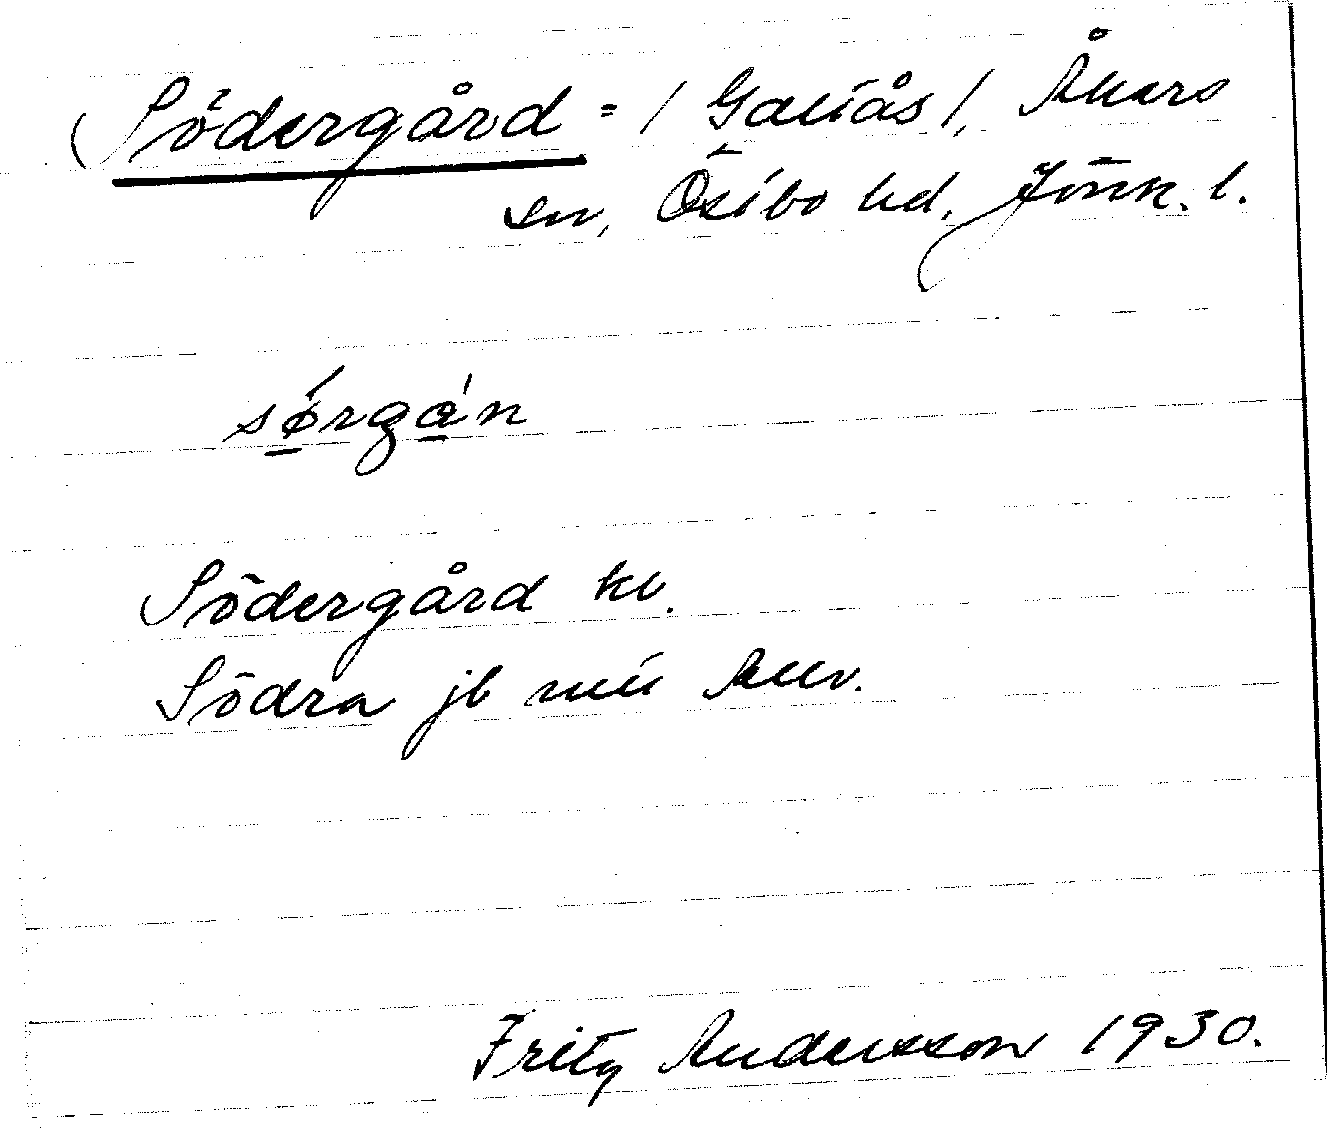 Södergård = / Galtås /, Åkers
sn, Östbo hd, Jönk. l.
sørgán
Södergård kv.
Södra jb
Fritz Andersson 1930.